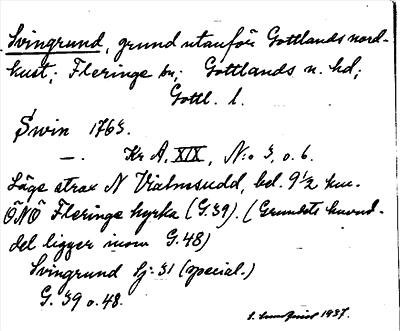 Svingrund, grund utanför Gottlands nord-
kust; Fleringe sn; Gottlands n. hd;
Gottl. l.
Swin 1763.
—. Kr A, XIX, N:o 3, o. 6.
Läge strax N Vialmsudd, bel. 9 1/2 km.
ÖNÖ Fleringe kyrka (G. 39). (Grundets huvud-
del ligger inom G. 48)
Svingrund Sj: 31 (special.)
G. 39 o. 48.
1937.